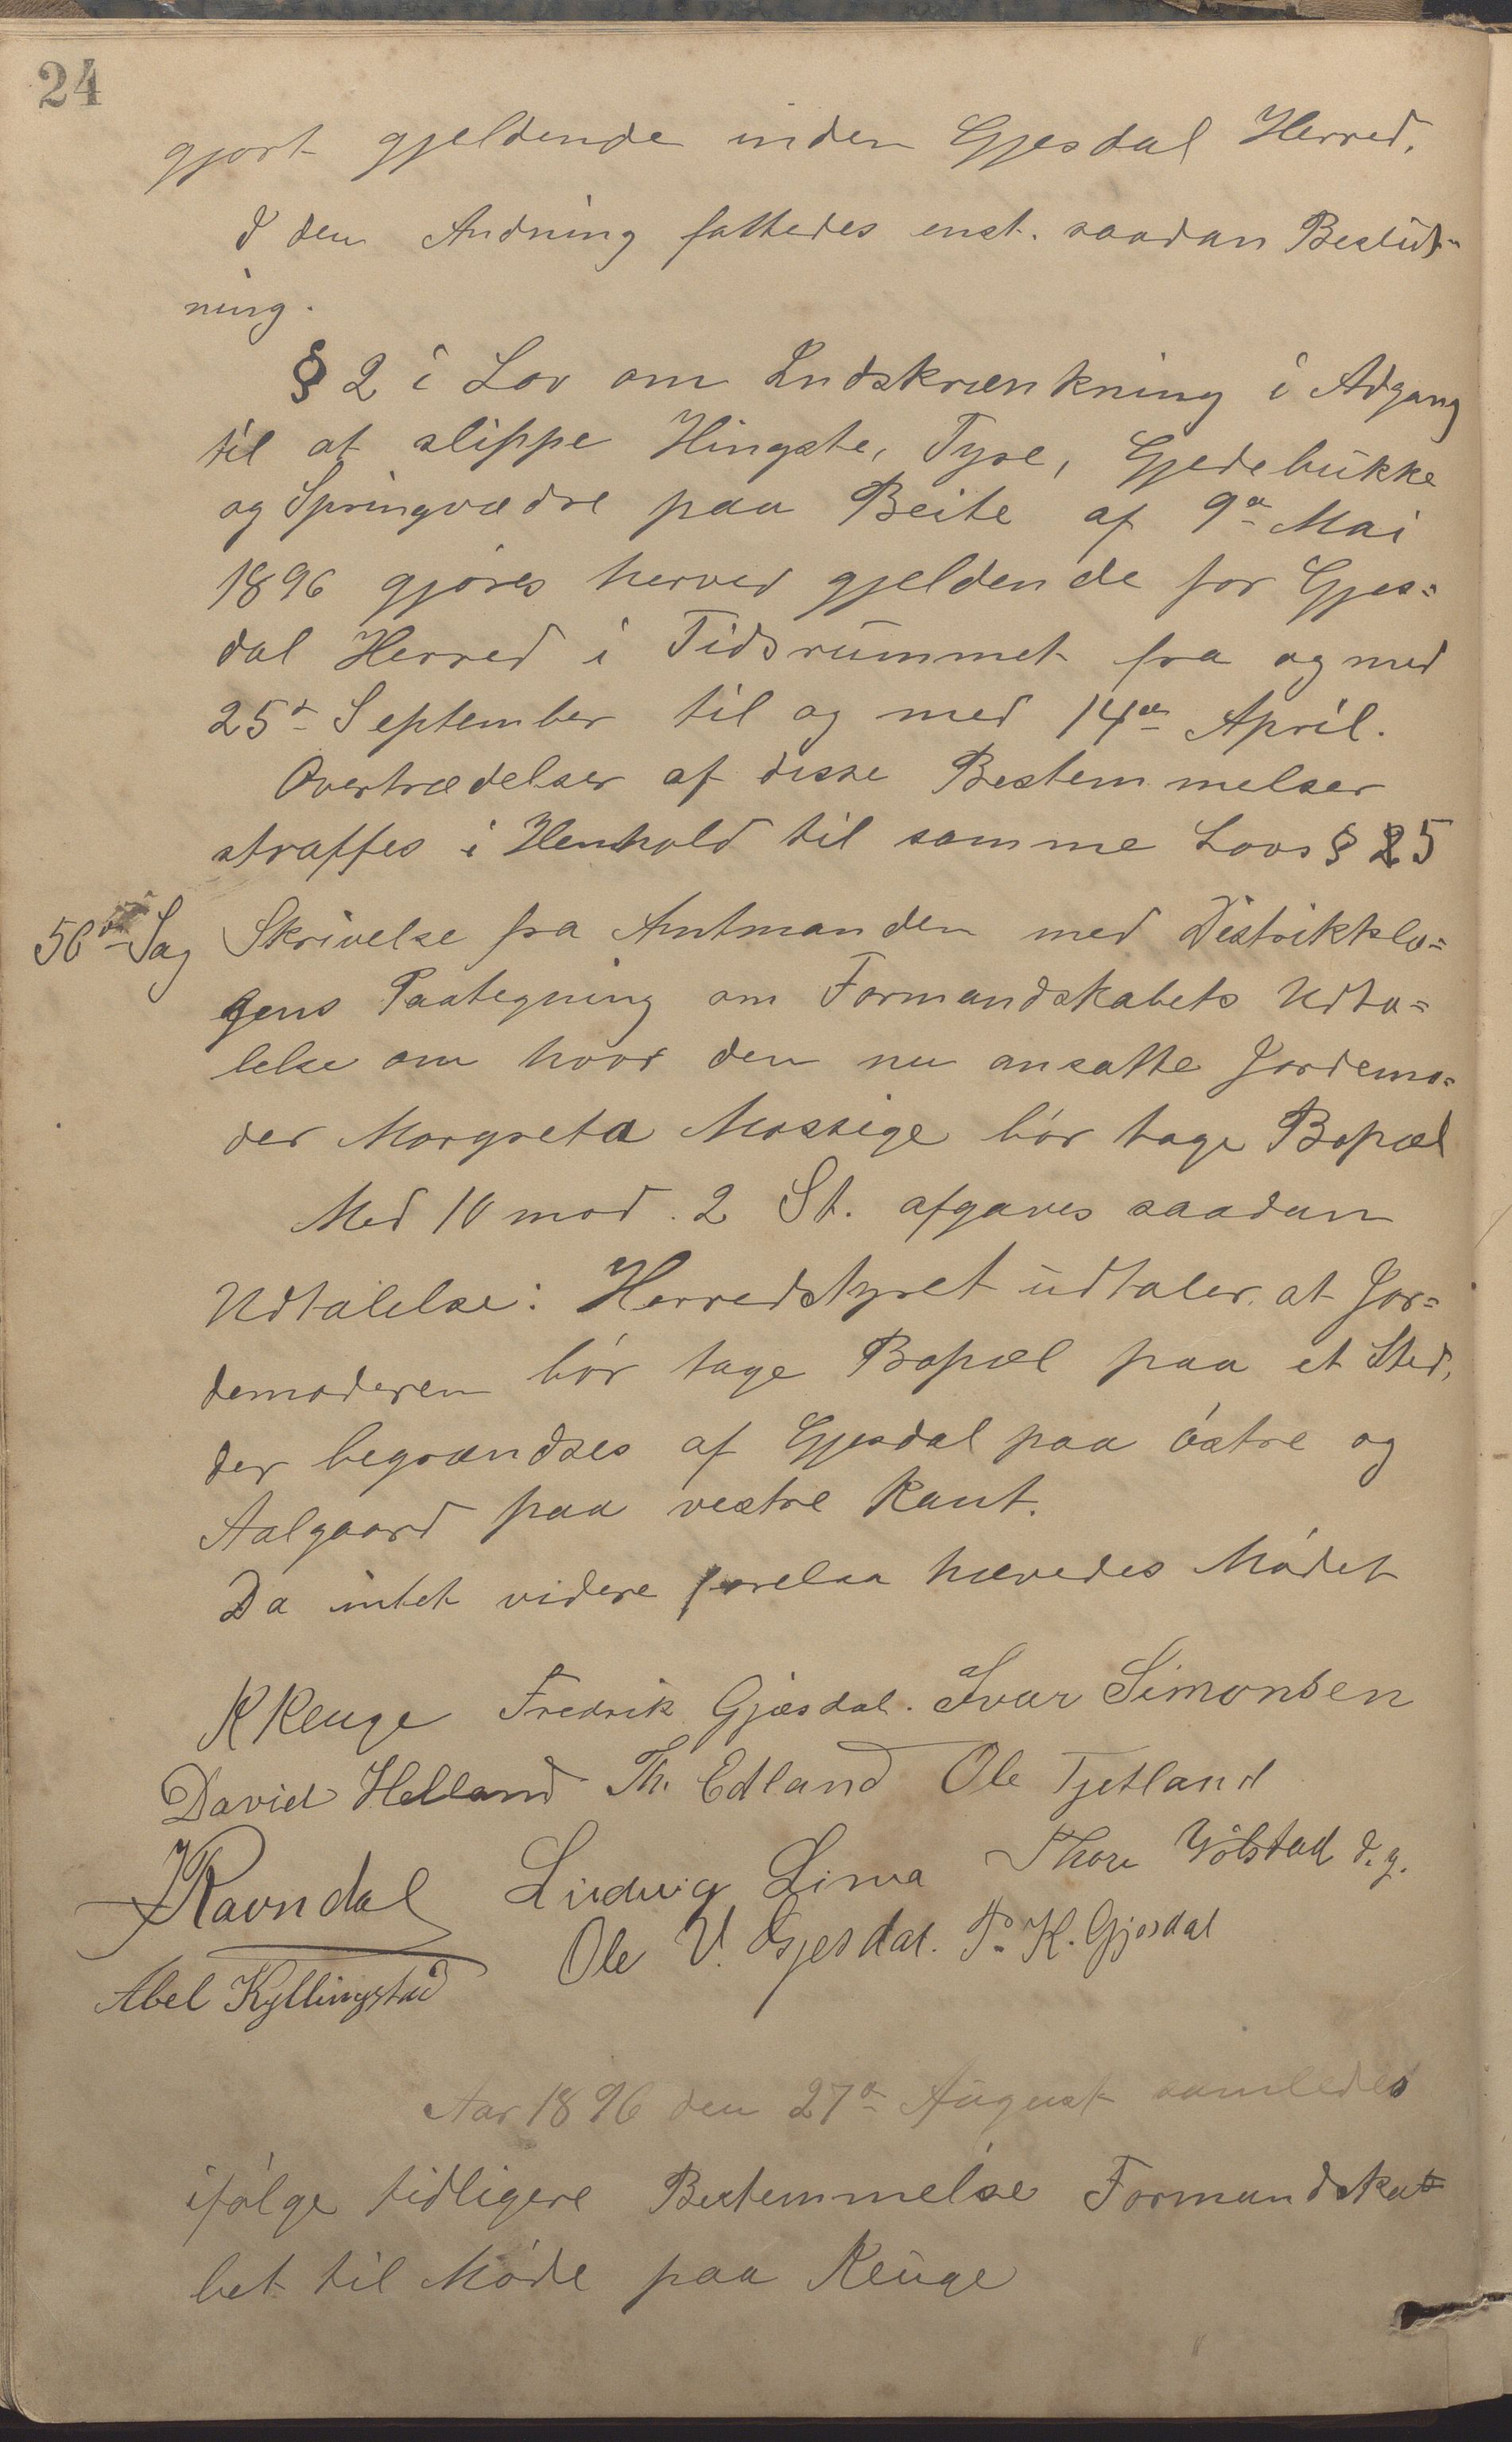 24
gjort gjeldende inden Gjesdal Herred.
I den Andning fattedes enst. saadan Beslut-
ning.
§ 2 i Lov om Indskrænkning i Adgang
til at slippe Hingste, Tyre, Gjedebukke
og Springvædre paa Beite af 9de Mai
1896 gjöres herved gjeldende for Gjes=
dal Herred i Tidsrummet fra og med
25de September til og med 14de April.
Overtrædelser af disse Bestemmelser
straffes i Henhold til samme Lovs § 5
56de Sag Skrivelse fra Amtmanden med Distriktslæ=
gens Paategning om Formandskabets Udta=
lelse om hvor den nu ansatte Jordemo=
der Margreta Mossige bör tage Bopæl
Med 10 mod 2 St. afgaves saadan
Udtalelse: Herredstyret udtaler, at Jor=
demoderen bör tage Bopæl paa et Sted,
der begrændses af Gjesdal paa östre og
Aalgaard paa vestre Kant.
Da intet videre forelaa hævedes Mödet
K Keuge Fredrik Gjæsdal. Ivar Simonsen
David Helland Th. Edland Ole Tjetland
Ravndal Ludvig Lima Thore Yölstad d.y.
Ole V. Gjesdal. P. K. Gjesdal
Abel Kyllingstad
Aar 1896 den 27de August samledes
ifölge tidligere Bestemmelse Formandska=
bet til Möde paa Keuge